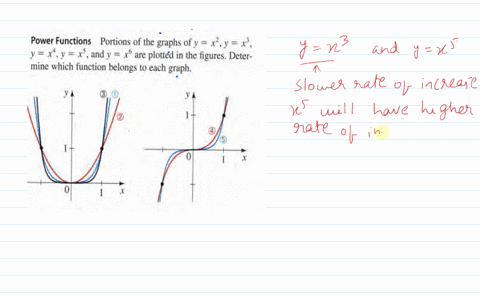 Power Functions Portions of the graphs of y = x², y = x³,
y = x⁴, y = x⁵, and y = x⁶ are plotted in the figures. Deter-
mine which function belongs to each graph.
y = x³ and y = x⁵
slower rate of increase
x⁵ will have higher
rate of in
y ③ ① ②
1
0 1 x
y
1
④ ⑤
0 1 x